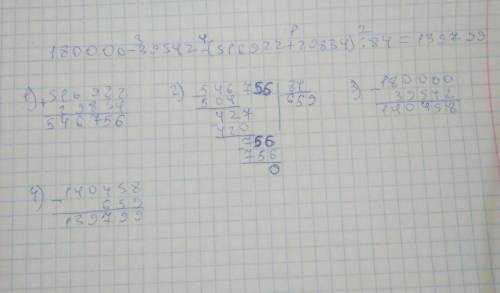 3 4 1 2
180000-39542-(516922+29834):84=139799
1) + 516922
29834
546756
2) 546756 84
504 659
427
420
756
756
0
3) - 180000
39542
140458
4) - 140458
659
139799